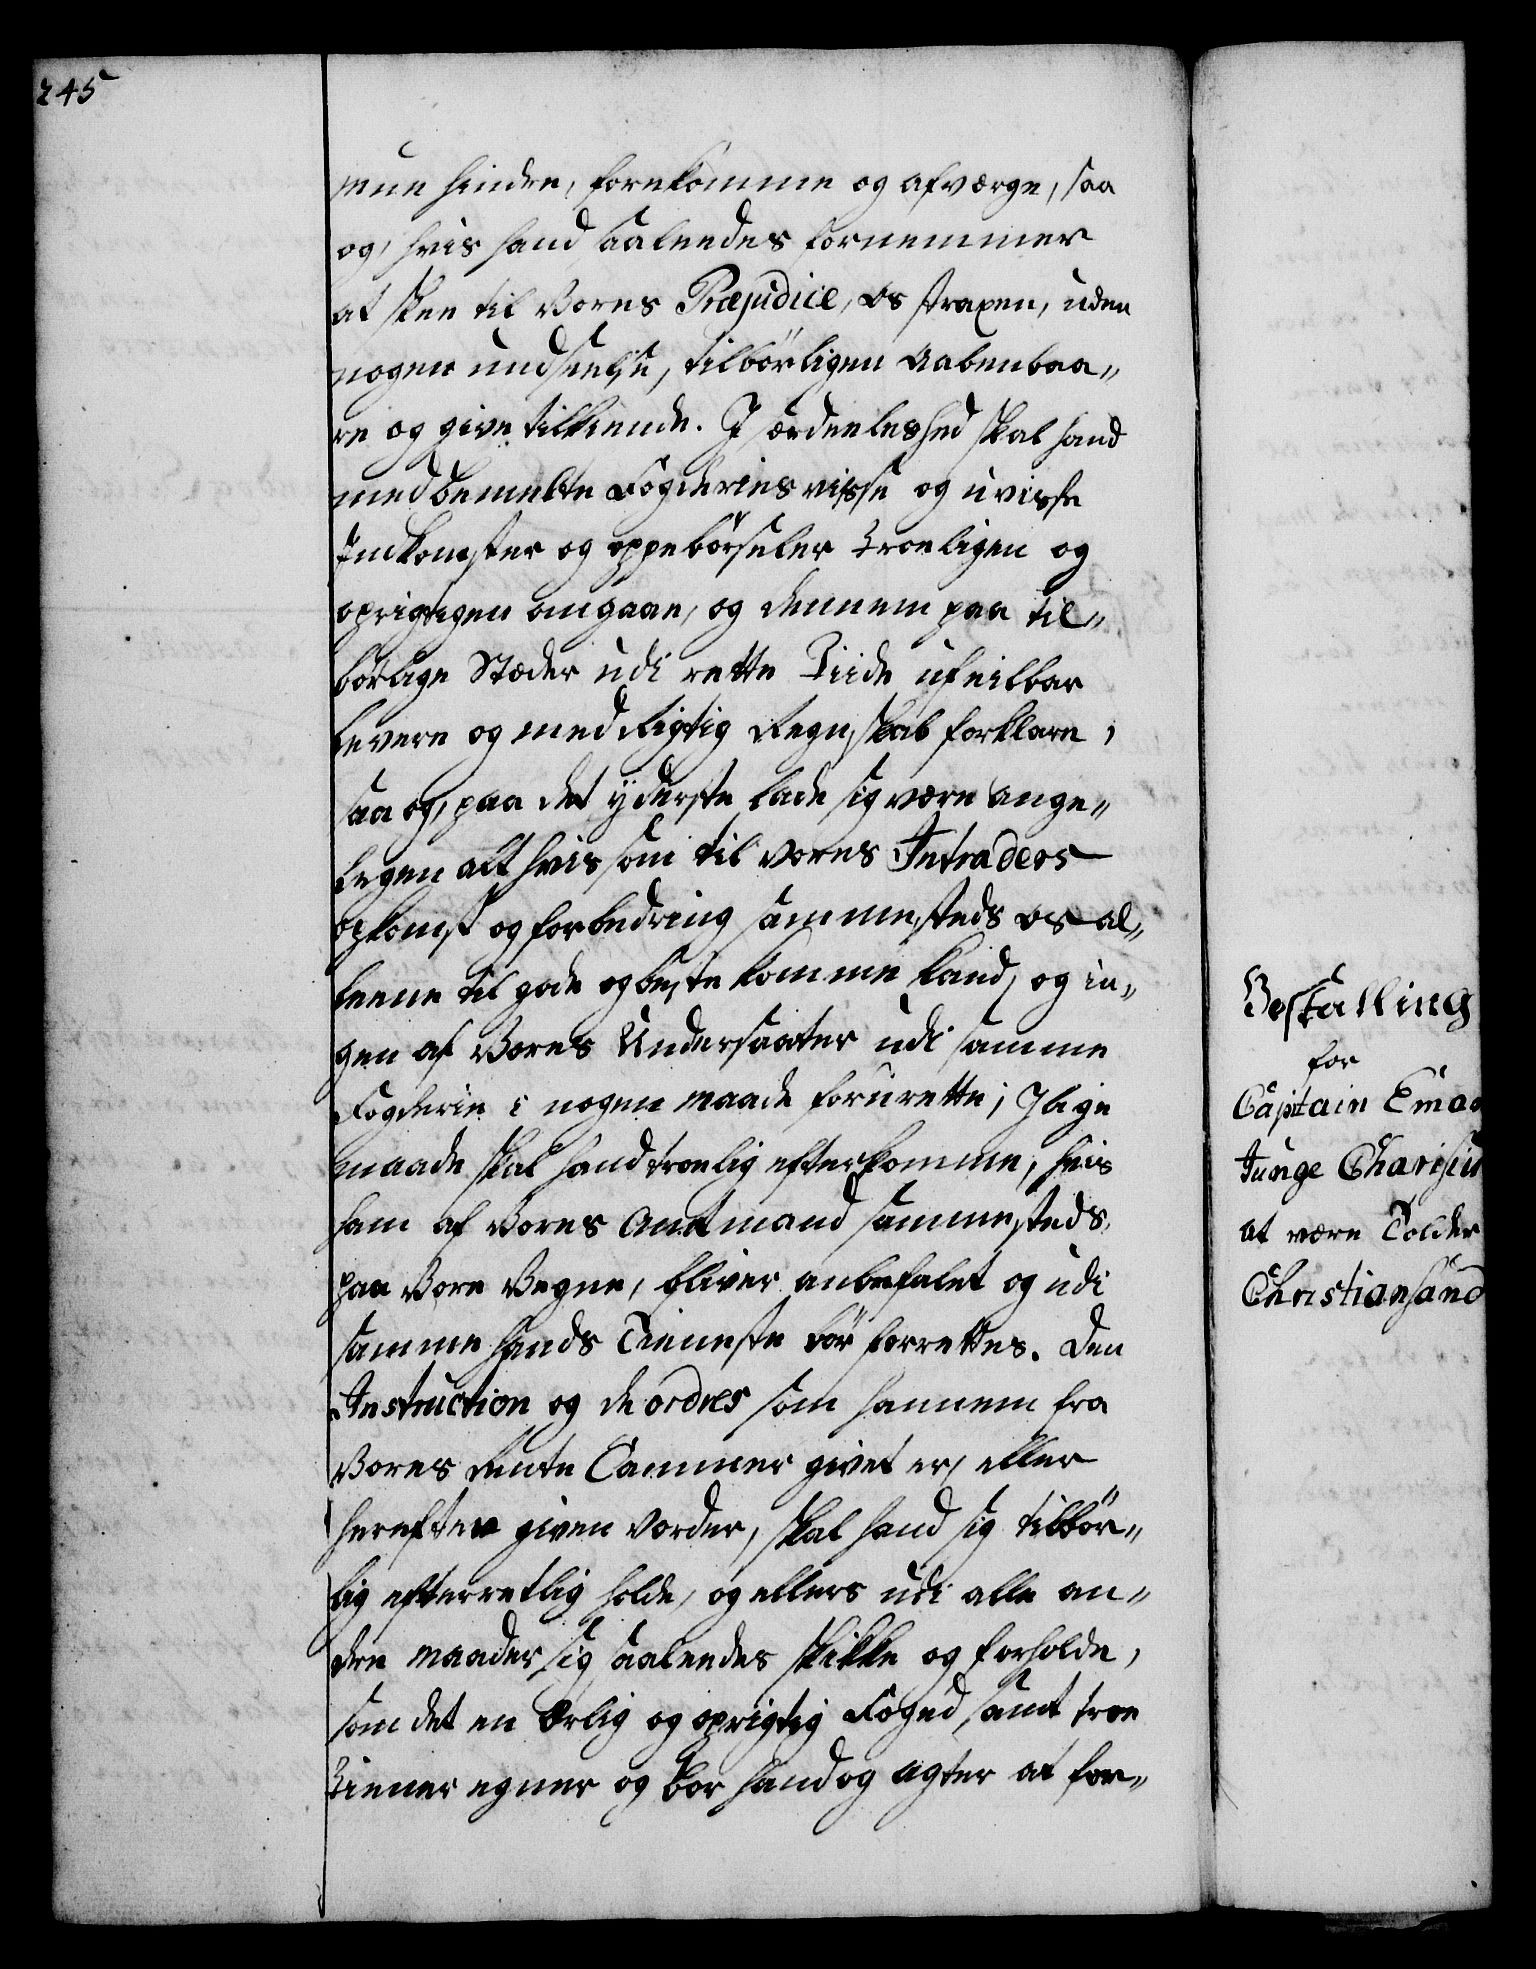 245
mue hindre, forekomme og afværge, saa
og, hvis hand saaleedes fornemmer
at skee til Vores Præjudice, os straxen, uden
nogen undseelse, tilbörligen Aabenbaa„
re og give tilkiende. I særdeeleshed skal hand
med bemelte Fogderies visse og uvisse
Indkomster og oppebörseler Troeligen og
oprigtigen omgaae, og dennem paa til„
börlige Stæder udi rette Tiide ufeilbar
levere og med Rigtig Regnskab forklare,
saa og, paa det yderste lade sig være ange„
legen alt hvis som til vores Intraders
opkomst og forbedring sammesteds os al„
leene til gode og beste komme kand, og in„
gen af Vores Undersaater udi samme
Fogderie i nogen maade forurette; I lige
maade skal hand troelig efterkomme, hvis
ham af Vores Amtmand sammesteds,
paa Vore Vegne, bliver anbefalet og udi
samme hands Tieneste bör forrettes. Den
Instruction og de ordres som hannem fra
Vores Rente Cammer givet er, eller
herefter given vorder, skal hand sig tilbör„
lig efterretlig holde, og ellers udi alle an„
dre maader sig saaleedes skikke og forholde,
som det en Ærlig og oprigtig Foged samt troe
Tiener egner og bör hand og agter at for„
Bestalling
for
Capitain
Junge
at være Tolder
Christiansand